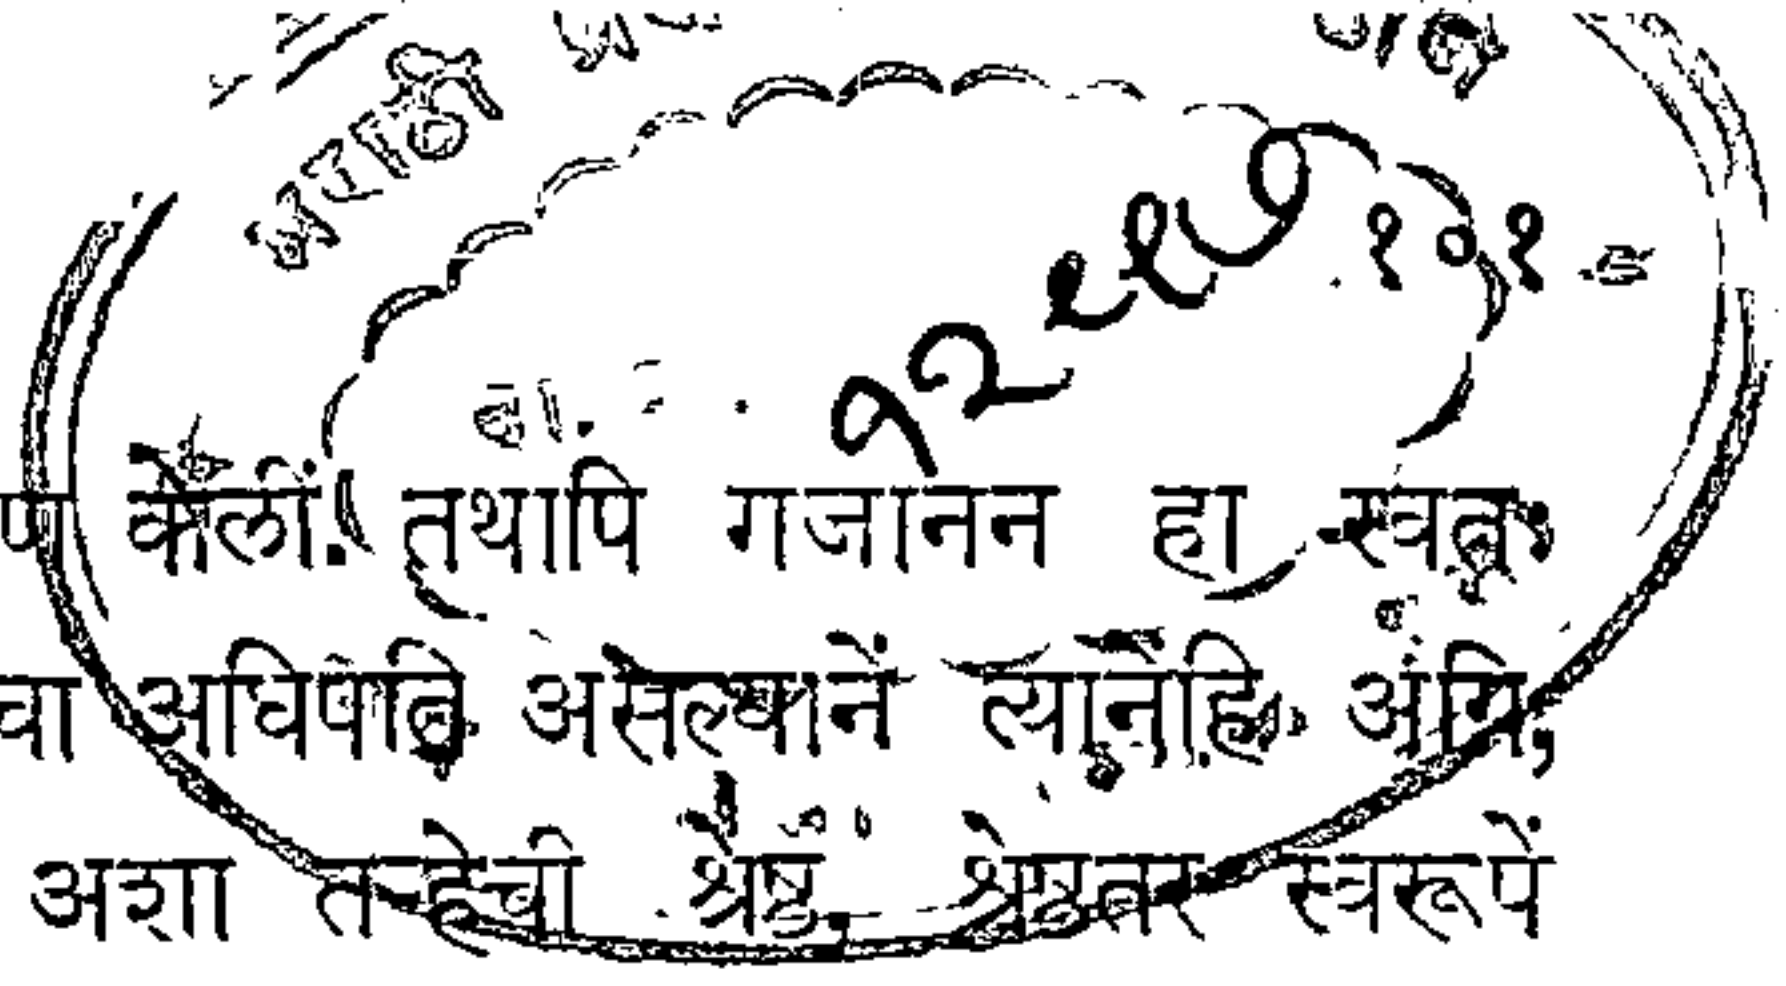 मराठी
१०१
ठा. १२२२७
ण केलीं. तथापि गजानन हा स्वतः
वा अधिपति असल्यानें त्यानेंहि अग्नि,
अशा तऱ्हेची श्रेष्ठ. श्रेष्ठतर स्वरूपें